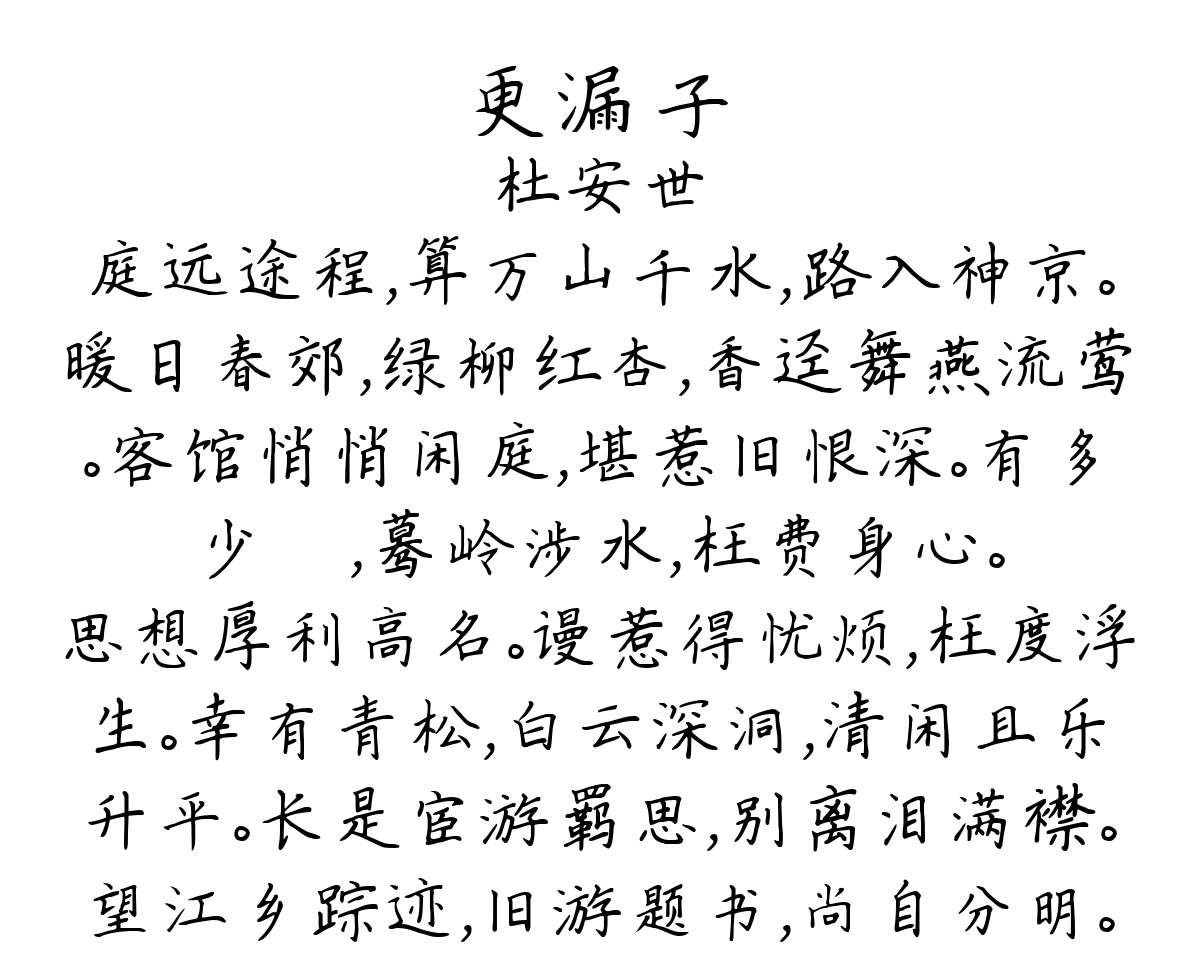 更漏子
杜安世
庭远途程,算万山千水,路入神京。
暖日春郊,绿柳红杏,香迳舞燕流莺
。客馆悄悄闲庭,堪惹旧恨深。有多
少 ,蓦岭涉水,枉费身心。
思想厚利高名。谩惹得忧烦,枉度浮
生。幸有青松,白云深洞,清闲且乐
升平。长是宦游羁思,别离泪满襟。
望江乡踪迹,旧游题书,尚自分明。